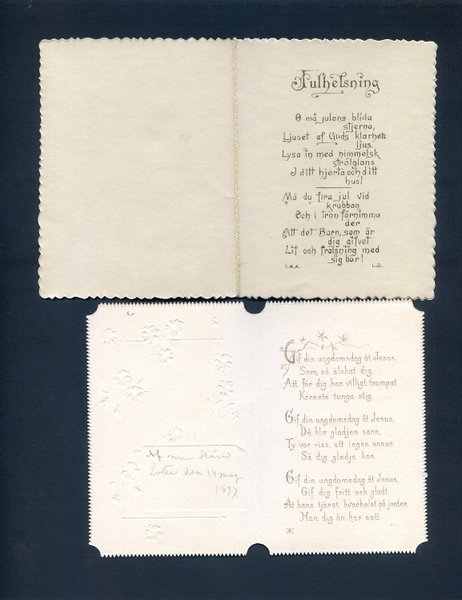 Julhelsning
O må julens blida
stjerna,
Ljuset af Guds klarhets
ljus,
Lysa in med himmelsk
strålglans
I ditt hjerta och ditt
hus!
Må du fira jul vid
krubban
Och i tron förnimma
der
Att det Barn, som är
dig gifvet
Lif och frälsning med
sig bär!
L.S.
Af min
den 14 maj
1897
Gif din ungdomsdag åt Jesus,
Som så älskat dig,
Att för dig han villigt trampat
Korsets tunga stig.
Gif din ungdomsdag åt Jesus;
Då blir gladjen sann,
Ty var viss, att ingen annan
Så dig gladja kan.
Gif din ungdomsdag åt Jesus,
Gif dig fritt och gladt
Åt hans tjänst, hvarhelst på jorden
Han dig än har satt